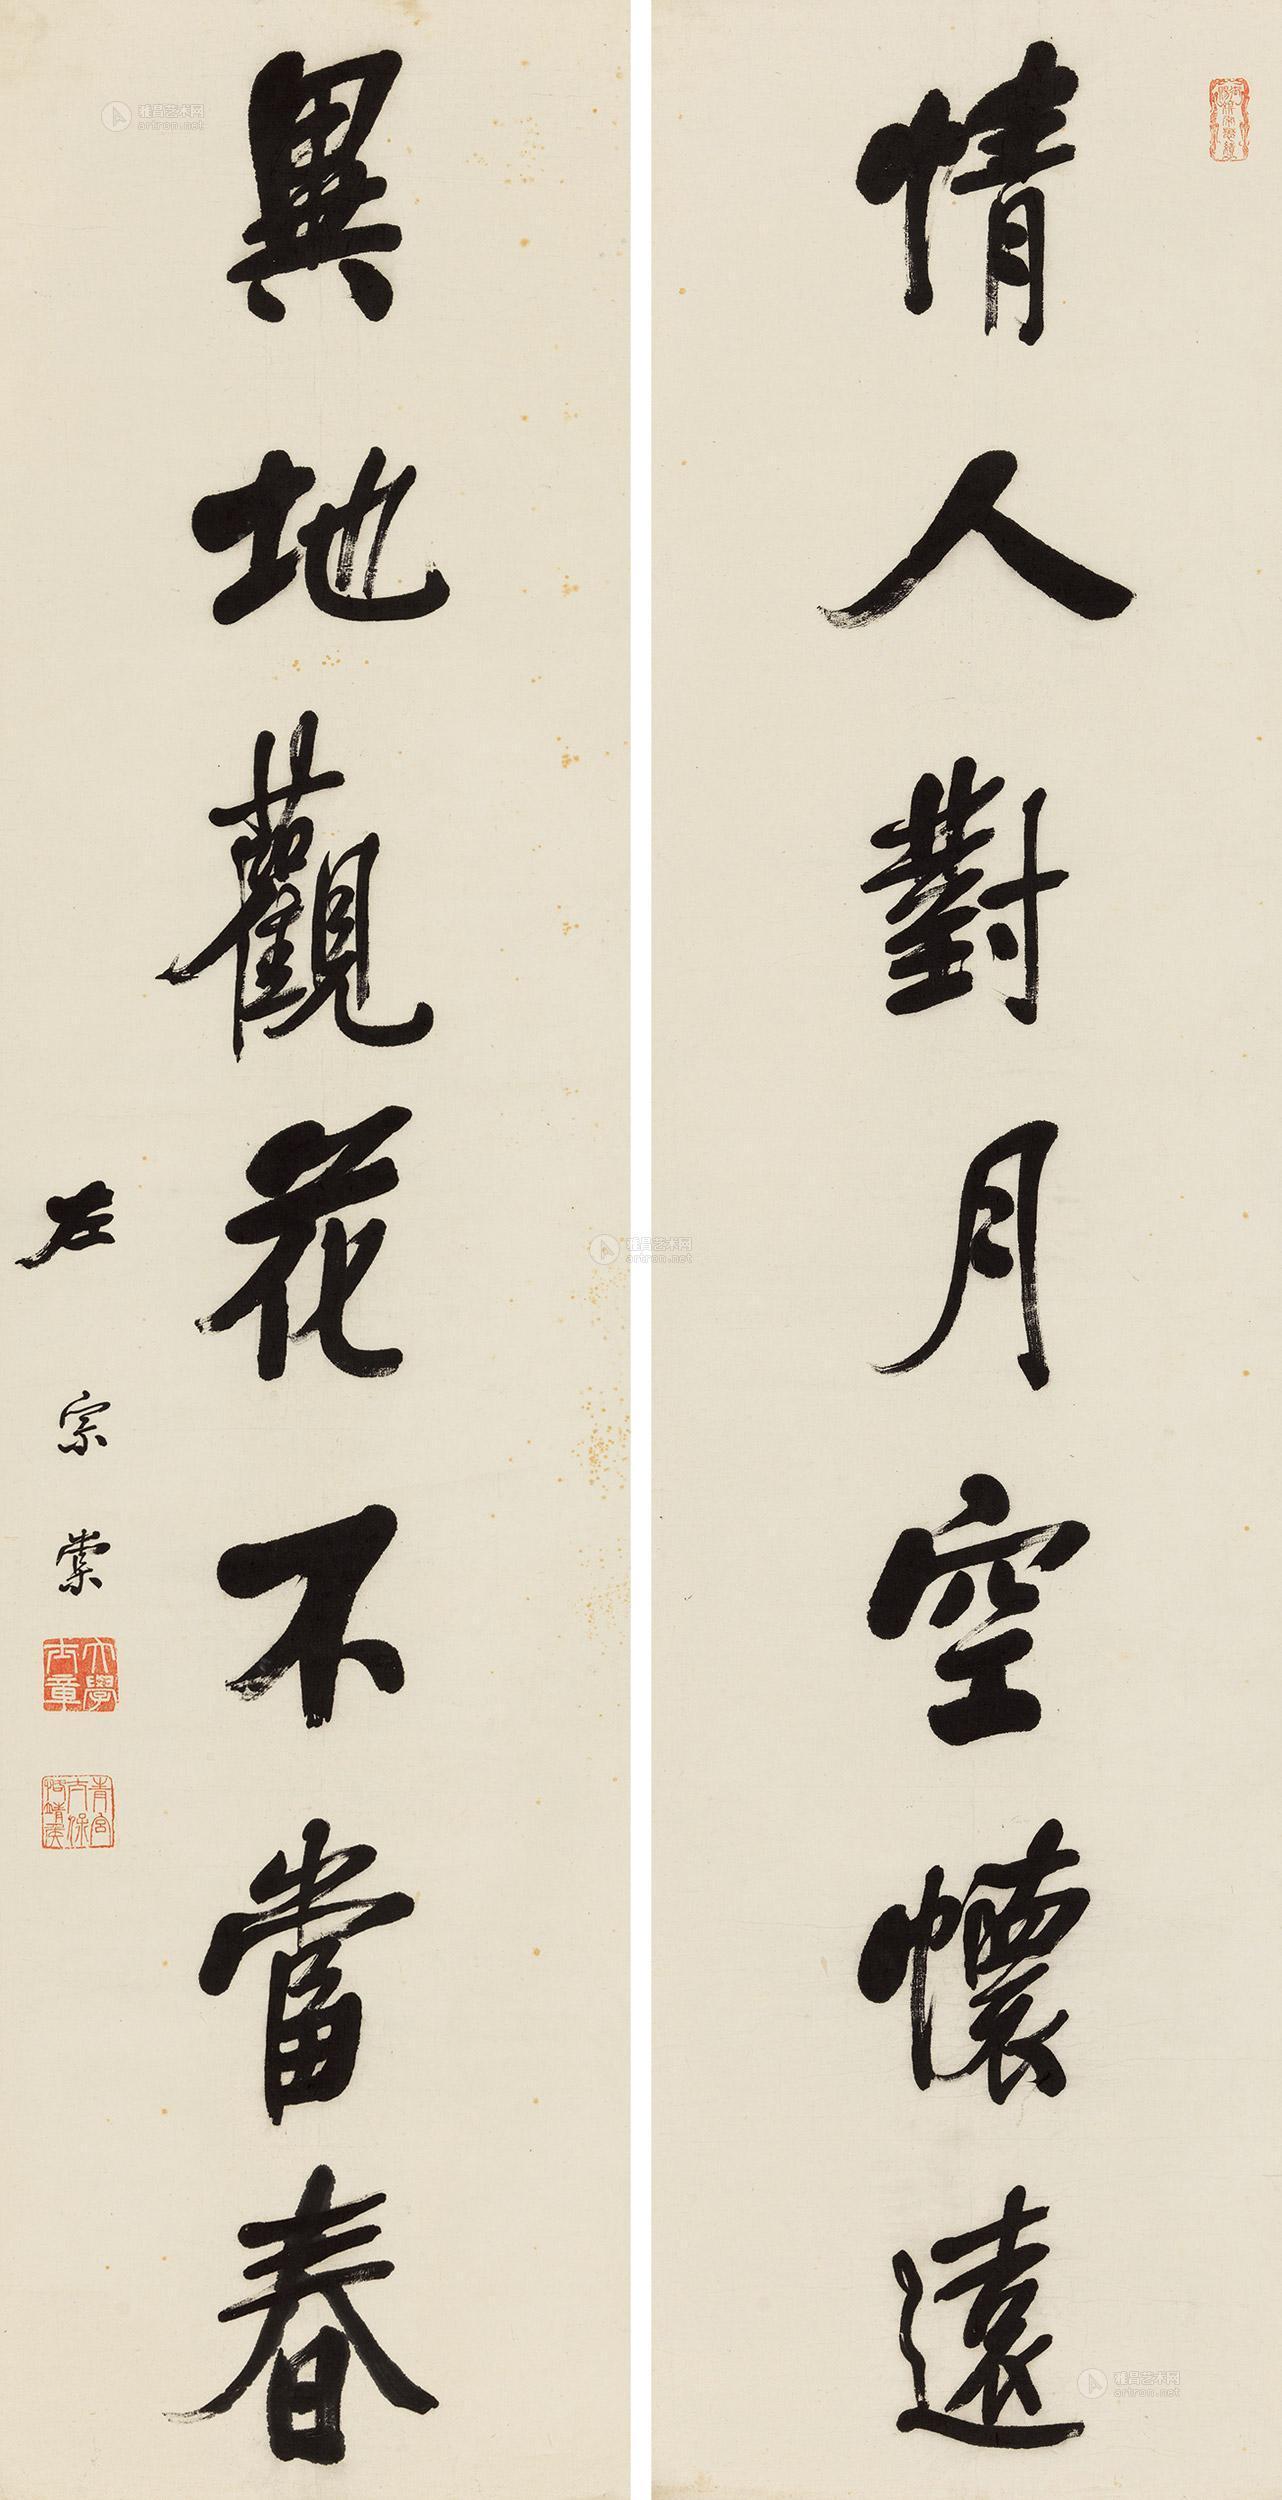 情人對月空懷遠
異地觀花不當春
左宗棠
大學士章
青宮太保恪靖侯
雅昌艺术网
artron.net
雅昌艺术网
artron.net
雅昌艺术网
artron.net